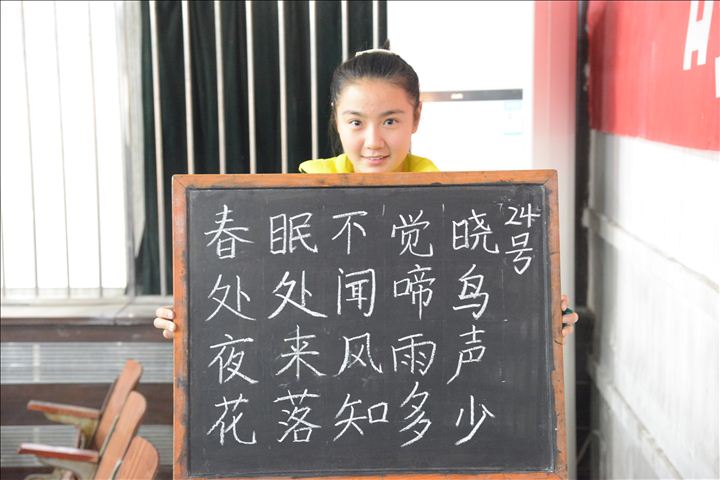 春眠不觉晓
处处闻啼鸟
夜来风雨声
花落知多少
24号